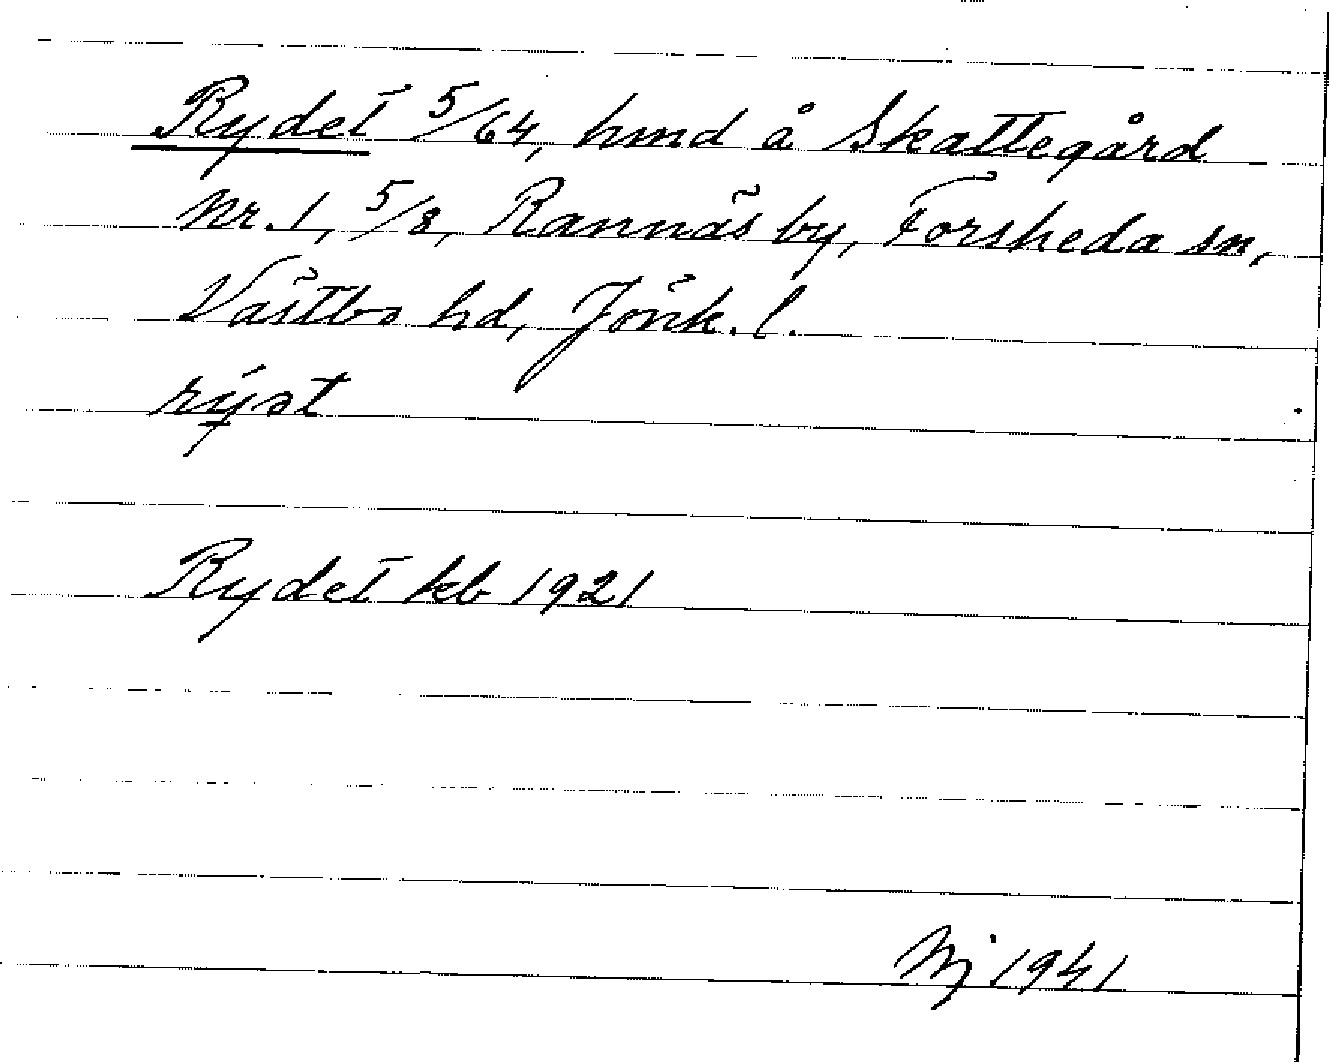 Rydet 5/64, hmd å Skattegård
nr. 1, 5/8, Rannäs by, Forsheda sn,
Västbo hd, Jönk. l.
Rydet kb 1921
Nj 1941